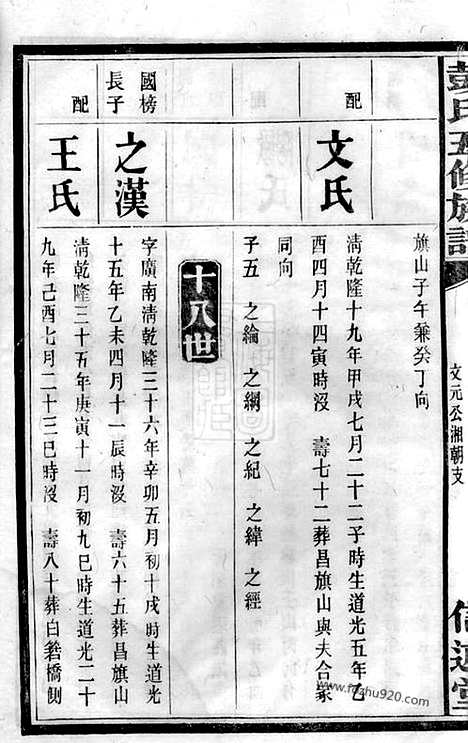 彭氏五修族譜
文元公湘朝支
信述堂
旗山子午兼癸丁向
配
文氏
清乾隆十九年甲戌七月二十二子時生道光五年乙
酉四月十四寅時沒 壽七十二葬昌旗山與夫合冢
同向
子五 之綸 之綱 之紀 之緯 之經
十八世
國榜
長子
之漢
字廣南清乾隆三十六年辛卯五月初十戌時生道光
十五年乙未四月十一辰時沒 壽六十五葬昌旗山
配
王氏
清乾隆三十五年庚寅十一月初九巳時生道光二十
九年己酉七月二十三巳時沒 壽八十葬白箬橋側
www.fozhu920.com